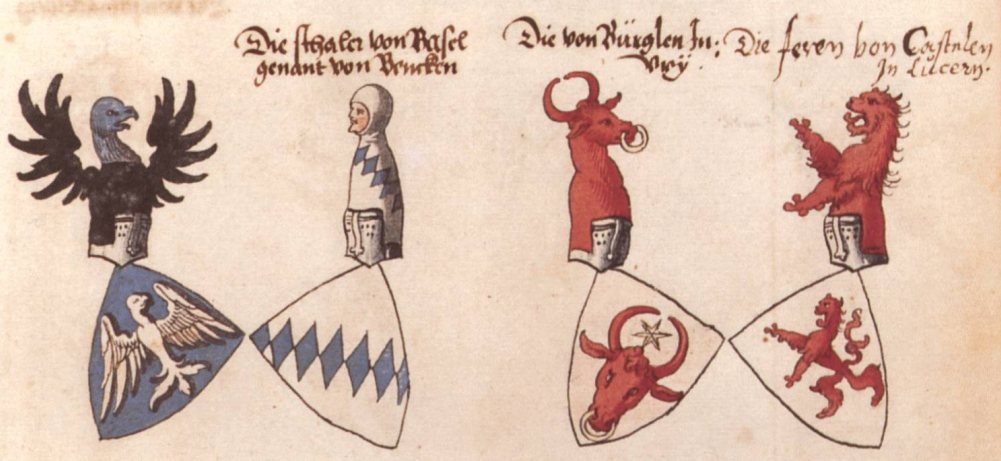 Die schaler von Basel
genant von Bencken
Die von Bürglen In
Vry.
Die feren von Castelen
In Lucern.